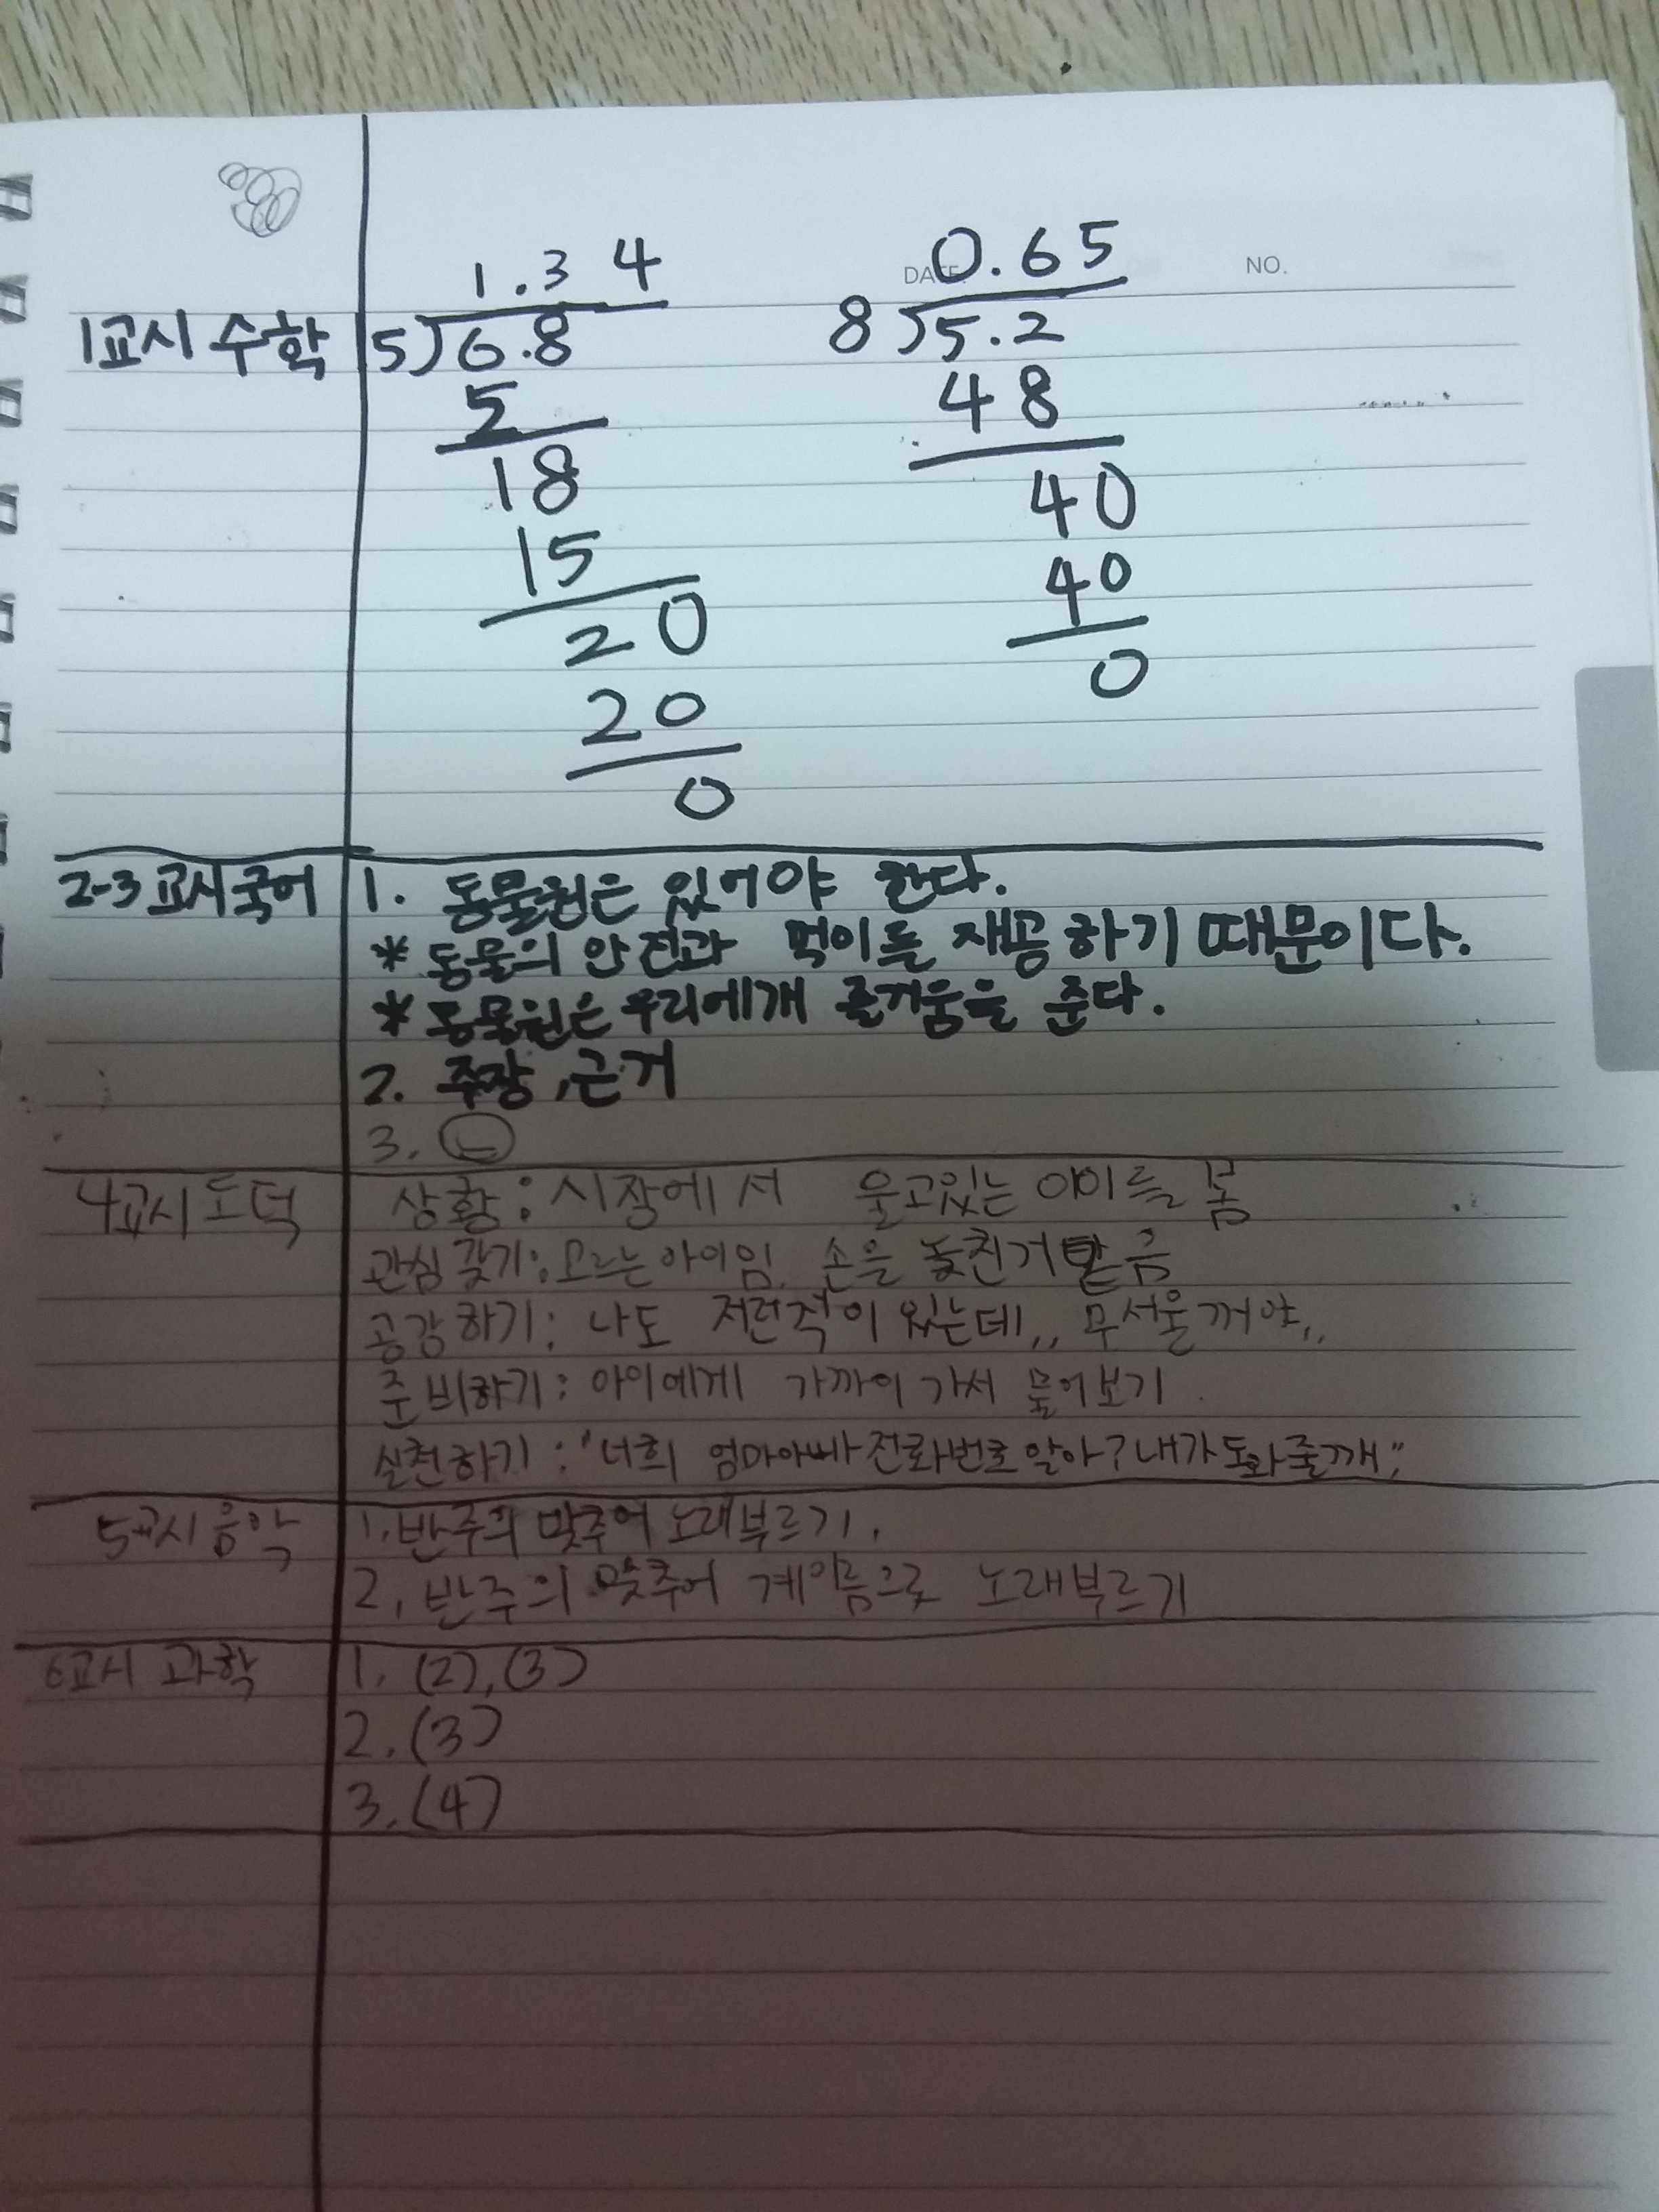 DATE. NO.
1교시 수학
1.34
5)6.8
5
18
15
20
20
0
0.65
8)5.2
48
40
40
0
2-3교시국어
1. 동물원은 있어야 한다.
* 동물의 안전과 먹이를 재공하기 때문이다.
* 동물원은 우리에개 즐거움을 준다.
2. 주장, 근거
3.
4교시 도덕
상황: 시장에서 울고있는 아이를 봄
관심 갖기: 모르는 아이임. 손을 놓친거 같음
공감하기: 나도 저런적이 있는데,, 무서울꺼야,,
준비하기: 아이에게 가까이 가서 물어보기
실천하기: "너희 엄마아빠 전화번호 알아? 내가 도와줄깨"
5교시 음악
1. 반주의 맞추어 노래부르기.
2. 반주의 맞추어 계이름으로 노래부르기
6교시 과학
1. (2), (3)
2. (3)
3. (4)